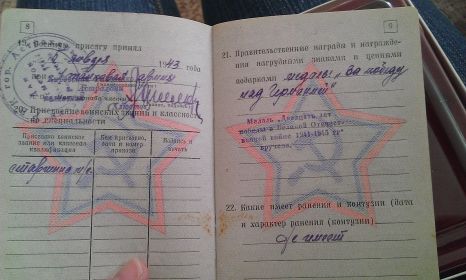 8
19. Военную присягу принял
января 1943 года
при
20. Присвоение воинских званий и классность
по специальности
Присвоено воинское
звание или классная
квалификация
Кем присвоено,
дата и номер
приказа
Подпись и
печать
старшина м/с
9
21. Правительственные награды и награжде-
ния нагрудными знаками и ценными
подарками медаль „За победу
над Германией"
Медаль „Двадцать лет
победы в Великой Отечест-
венной войне 1941-1945 гг"
вручена.
22. Какие имеет ранения и контузии (дата
и характер ранения (контузии)
не имеет